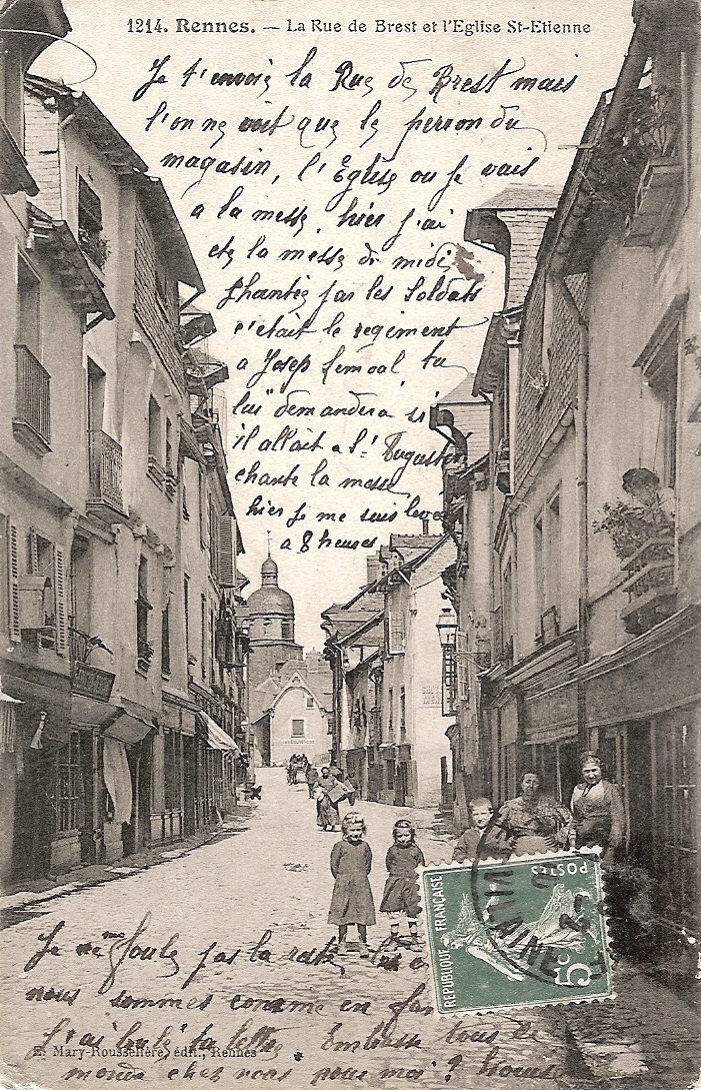 1214. Rennes. — La Rue de Brest et l'Eglise St-Etienne
Je t'envoie la Rue de Brest mais
l'on ne voit que le perron du
magasin, l'Eglise ou je vais
a la messe, hier j'ai
ete la messe de midi
chantée par les Soldats
c'etait le regiment
a Josep tu
lui demandera si
il allait a St Augustin
chante la messe
hier je me suis levée
a 8 heures
Je ne me foule pas la rate
nous sommes comme en
j'ai ta lettre Embrasse tous le
monde chez vous pour moi
E. Mary-Rousselière, édit., Rennes
POSTES
REPUBLIQUE FRANÇAISE
5c
VILAINE